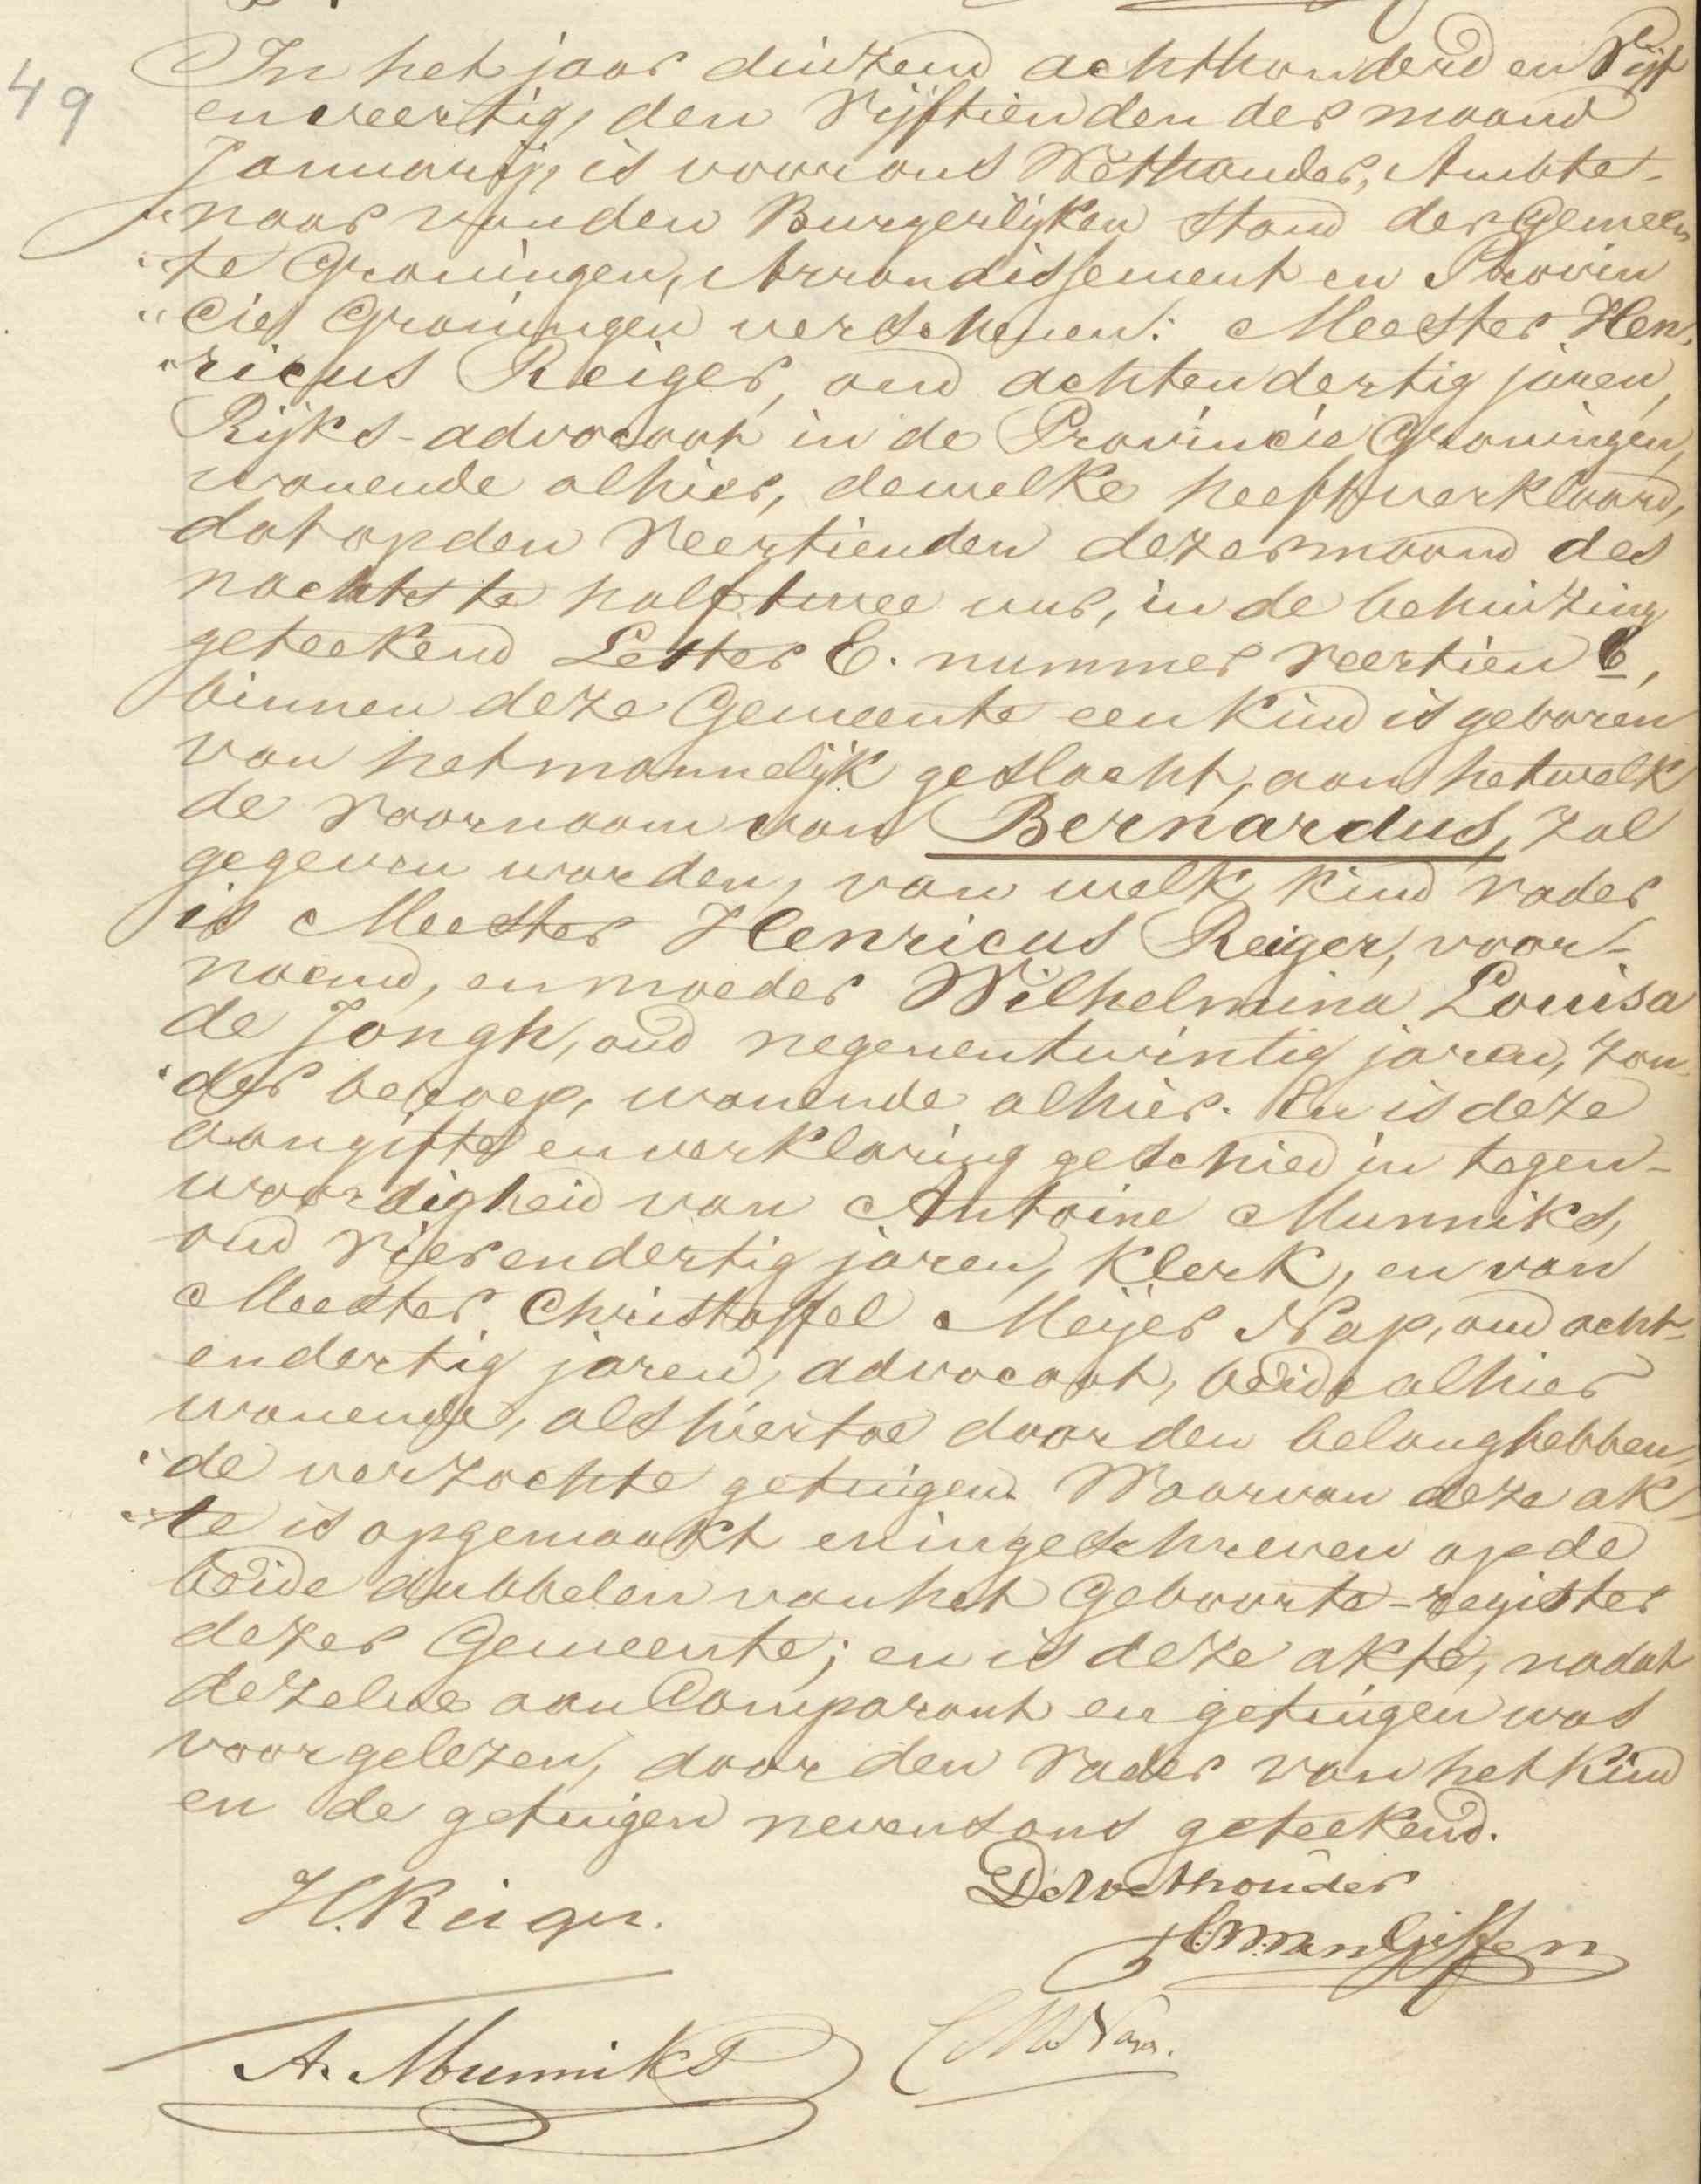 49
In het jaar duizend achthonderd en Vijf
en veertig, den Vijftienden der maand
Januarij, is voor ons Wethouder, Ambte-
naar van den Burgerlijken Stand der Gemeen
"te Groningen, Arrondissement en Provin
"cie Groningen verschenen: Meester Hen„
"ricus Reiger, oud achtendertig jaren,
Rijks-advocaat in de Provincie Groningen,
wonende alhier, dewelke heeft verklaard,
dat op den Veertienden dezer maand des
nachts te half twee uur, in de behuizing
geteekend Letter E. nummer veertien b,
binnen deze Gemeente een kind is geboren
van het mannelijk geslacht, aan hetwelk
de Voornaam van Bernardus, zal
gegeven worden, van welk kind vader
is Meester Henricus Reiger, voor-
noemd, en moeder Wilhelmina Louisa
de Jongh, oud negenentwintig jaren, zon„
"der beroep, wonende alhier. En is deze
aangifte en verklaring geschied in tegen-
woordigheid van Antoine Munniks,
oud Vierendertig jaren, klerk, en van
Meester Christoffel Meijer Nap, oud acht-
endertig jaren, advocaat, beide alhier
wonende, als hiertoe door den belanghebben„
"de verzochte getuigen. Waarvan deze ak„
"te is opgemaakt en ingeschreven op de
beide dubbelen van het Geboorte-register
dezer Gemeente; en is deze akte, nadat
dezelve aan Comparant en getuigen was
voorgelezen, door den Vader van het kind
en de getuigen nevens ons geteekend.
De Wethouder
H. Reiger.
van Giffen
A. Munniks
C M Nap.